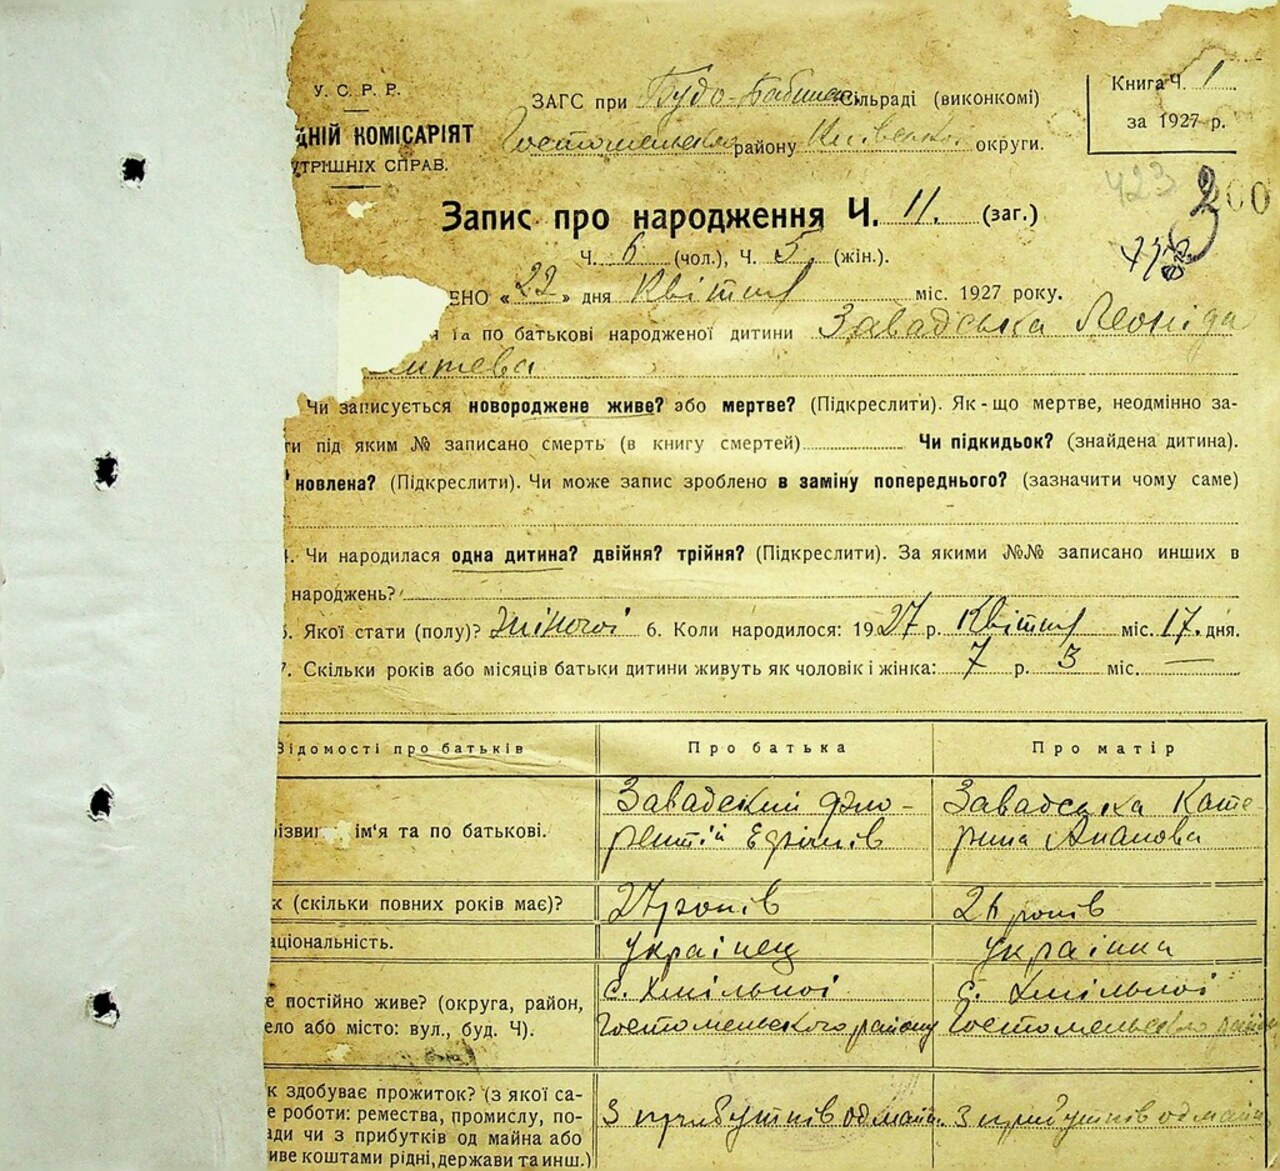 У. С. Р. Р.
ДНІЙ КОМІСАРІЯТ
УТРІШНІХ СПРАВ.
ЗАГС при Будо-Бабинец. сільраді (виконкомі)
Гостомельсько району Київської округи.
Книга Ч. 1
за 1927 р.
423
200
Запис про народження Ч. 11. (заг.)
Ч. 6 (чол.), Ч. 5 (жін.).
ЕНО « 22 » дня Квітня міс. 1927 року.
я та по батькові народженої дитини Завадська Леоніда
Чи записується новороджене живе? або мертве? (Підкреслити). Як-що мертве, неодмінно за-
ти під яким № записано смерть (в книгу смертей) Чи підкидьок? (знайдена дитина).
новлена? (Підкреслити). Чи може запис зроблено в заміну попереднього? (зазначити чому саме)
4. Чи народилася одна дитина? двійня? трійня? (Підкреслити). За якими №№ записано инших в
народжень?
5. Якої стати (полу)? жіночої 6. Коли народилося: 1927 р. Квітня міс. 17. дня.
7. Скільки років або місяців батьки дитини живуть як чоловік і жінка: 7 р. 3 міс. —
Відомості про батьків Про батька Про матір
різвищ ім'я та по батькові. Завадский Фло- Завадська Кате-
рентій рина
к (скільки повних років має)? 27 років 26 років
аціональність. українец українка
е постійно живе? (округа, район, с. Хмільної с. Хмільної
ело або місто: вул., буд. Ч). Гостомельского району Гостомельского
к здобуває прожиток? (з якої са-
е роботи: ремества, промислу, по- З прибутків од майн. З прибутків од майн
ади чи з прибутків од майна або
иве коштами рідні, держави та инш.)